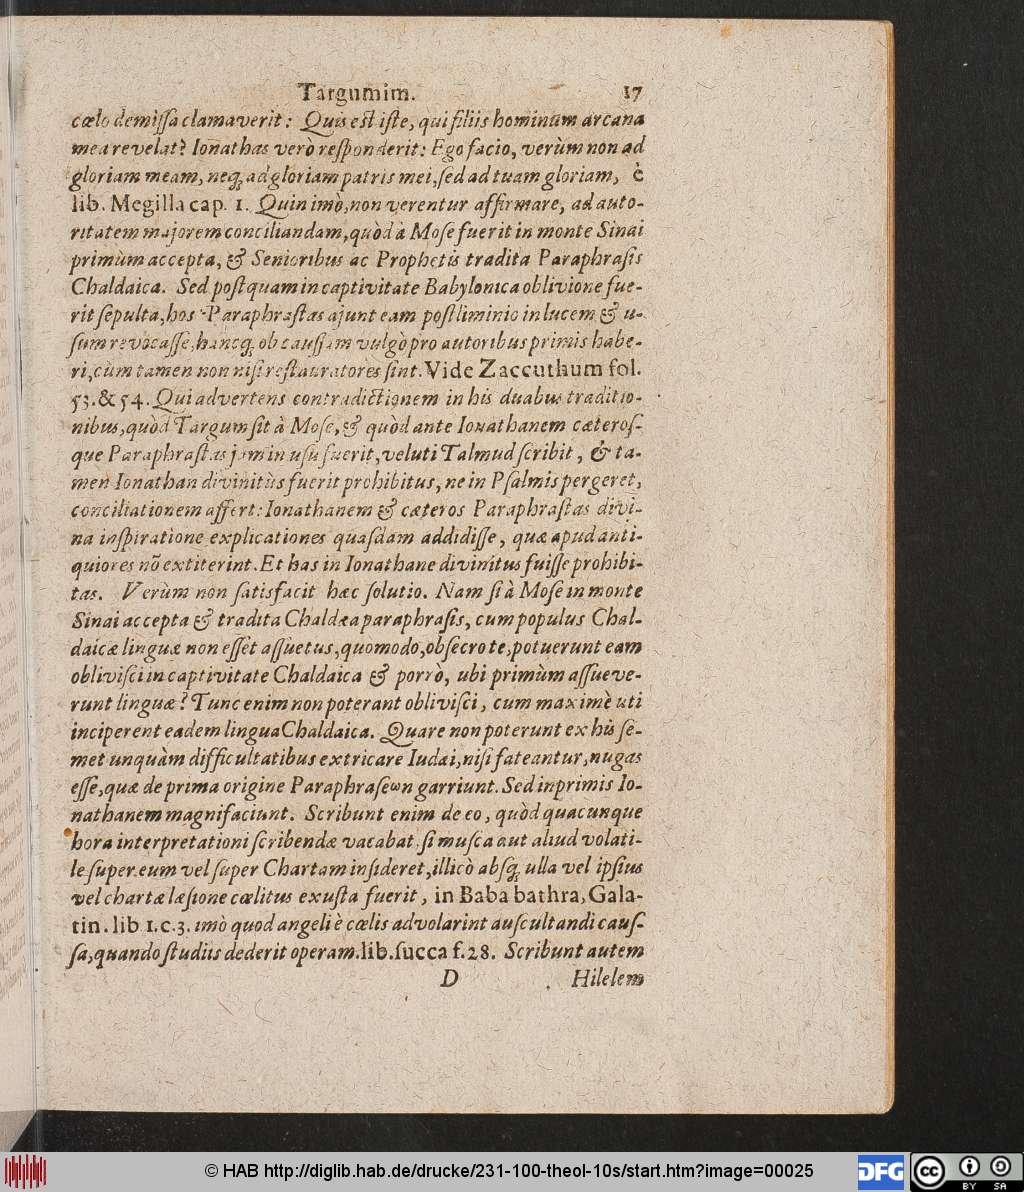 Targumim. 17
cœlo demissa clamaverit: Quis est iste, qui filiis hominum arcana
mea revelat? Ionathas verò responderit: Ego facio, verùm non ad
gloriam meam, neq; ad gloriam patris mei, sed ad tuam gloriam, è
lib. Megilla cap. 1. Quin imò, non verentur affirmare, ad auto-
ritatem majorem conciliandam, quòd à Mose fuerit in monte Sinai
primùm accepta, & Senioribus ac Prophetis tradita Paraphrasis
Chaldaica. Sed postquam in captivitate Babylonica oblivione fue-
rit sepulta, hos Paraphrastas ajunt eam postliminio in lucem & u-
sum revocasse, hancq; ob caussam vulgò pro autoribus primis habe-
ri, cùm tamen non nisi restauratores sint. Vide Zaccuthum fol.
53. & 54. Qui advertens contradictionem in his duabus traditio-
nibus, quòd Targum sit à Mose, & quòd ante Ionathanem cæteros-
que Paraphrastas jam in usu fuerit, veluti Talmud scribit, & ta-
men Ionathan divinitùs fuerit prohibitus, ne in Psalmis pergeret,
conciliationem affert: Ionathanem & cæteros Paraphrastas divi-
na inspiratione explicationes quasdam addidisse, quæ apud anti-
quiores nõ extiterint. Et has in Ionathane divinitus fuisse prohibi-
tas. Verùm non satisfacit hæc solutio. Nam si à Mose in monte
Sinai accepta & tradita Chaldæa paraphrasis, cum populus Chal-
daicæ linguæ non esset assuetus, quomodo, obsecro te, potuerunt eam
oblivisci in captivitate Chaldaica & porrò, ubi primùm assueve-
runt linguæ? Tunc enim non poterant oblivisci, cum maximè uti
inciperent eadem lingua Chaldaica. Quare non poterunt ex his se-
met unquàm difficultatibus extricare Iudæi, nisi fateantur, nugas
esse, quæ de prima origine Paraphraseωn garriunt. Sed inprimis Io-
nathanem magnifaciunt. Scribunt enim de eo, quòd quacunque
hora interpretationi scribendæ vacabat, si musca aut aliud volati-
le super eum vel super Chartam insideret, illicò absq; ulla vel ipsius
vel chartæ læsione cœlitus exusta fuerit, in Baba bathra, Gala-
tin. lib 1. c. 3. imò quod angeli è cœlis advolarint auscultandi caus-
sa, quando studiis dederit operam. lib. succa f. 28. Scribunt autem
D Hilelem
© HAB http://diglib.hab.de/drucke/231-100-theol-10s/start.htm?image=00025
DFG
cc BY SA